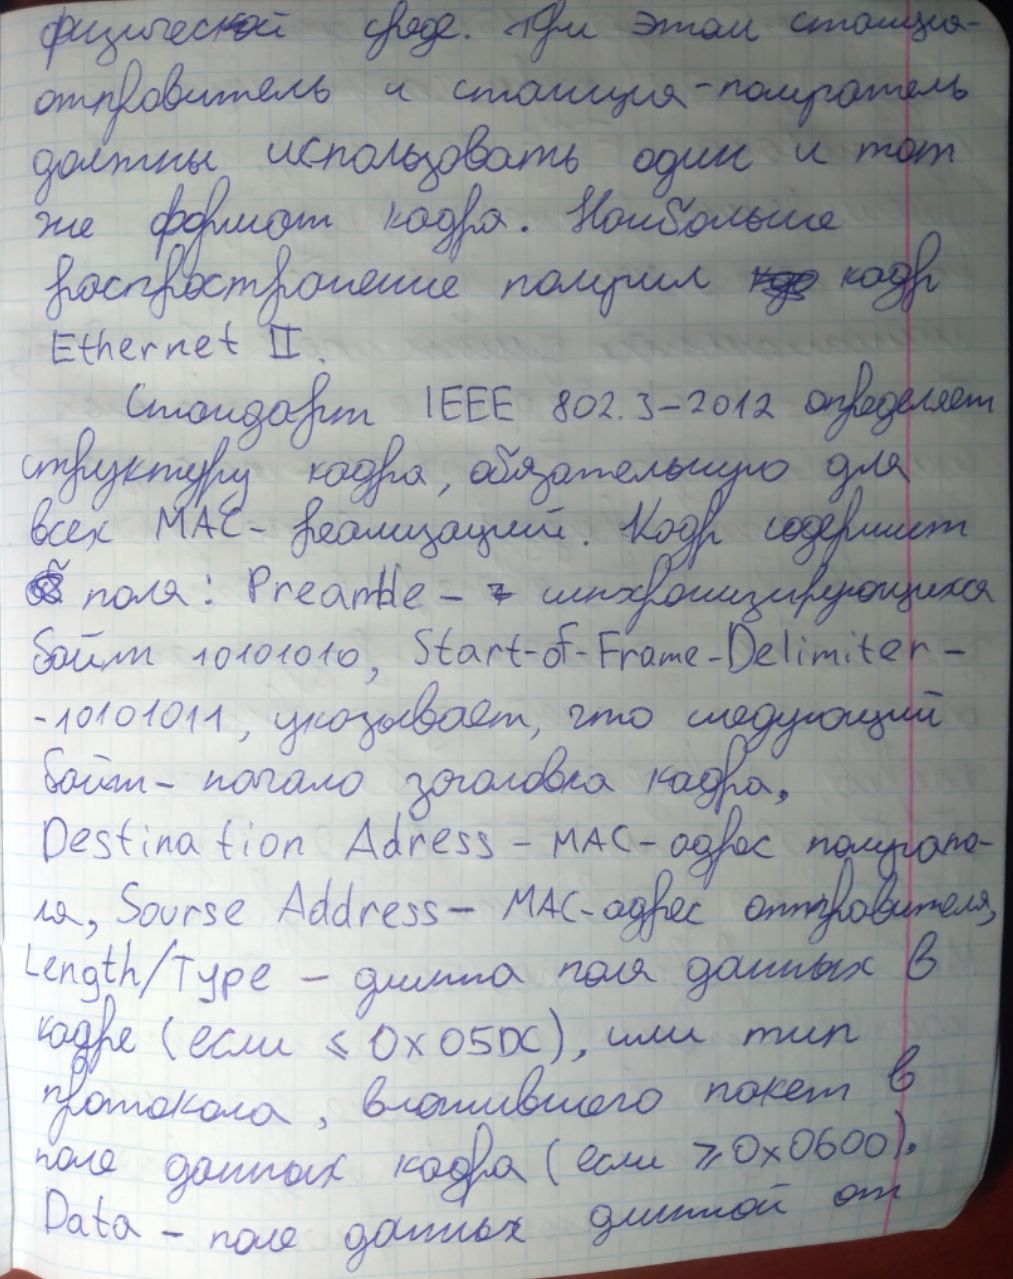 физической среде. При этом станция-
отправитель и станция-получатель
должны использовать один и тот
же формат кадра. Наибольшее
распространение получил кадр
Ethernet II.
Стандарт IEEE 802.3-2012 определяет
структуру кадра, обязательную для
всех MAC-реализаций. Кадр содержит
поля: Preamble - 7 синхронизирующихся
байт 10101010, Start-of-Frame-Delimiter -
-10101011, указывает, что следующий
байт - начало заголовка кадра,
Destination Adress - MAC-адрес получате-
ля, Sourse Address - MAC-адрес отправителя,
Length/Type - длинна поля данных в
кадре (если ≤ 0x05DC), или тип
протокола, вложившего пакет в
поле данных кадра (если ≥ 0x0600).
Data - поле данных длинной от